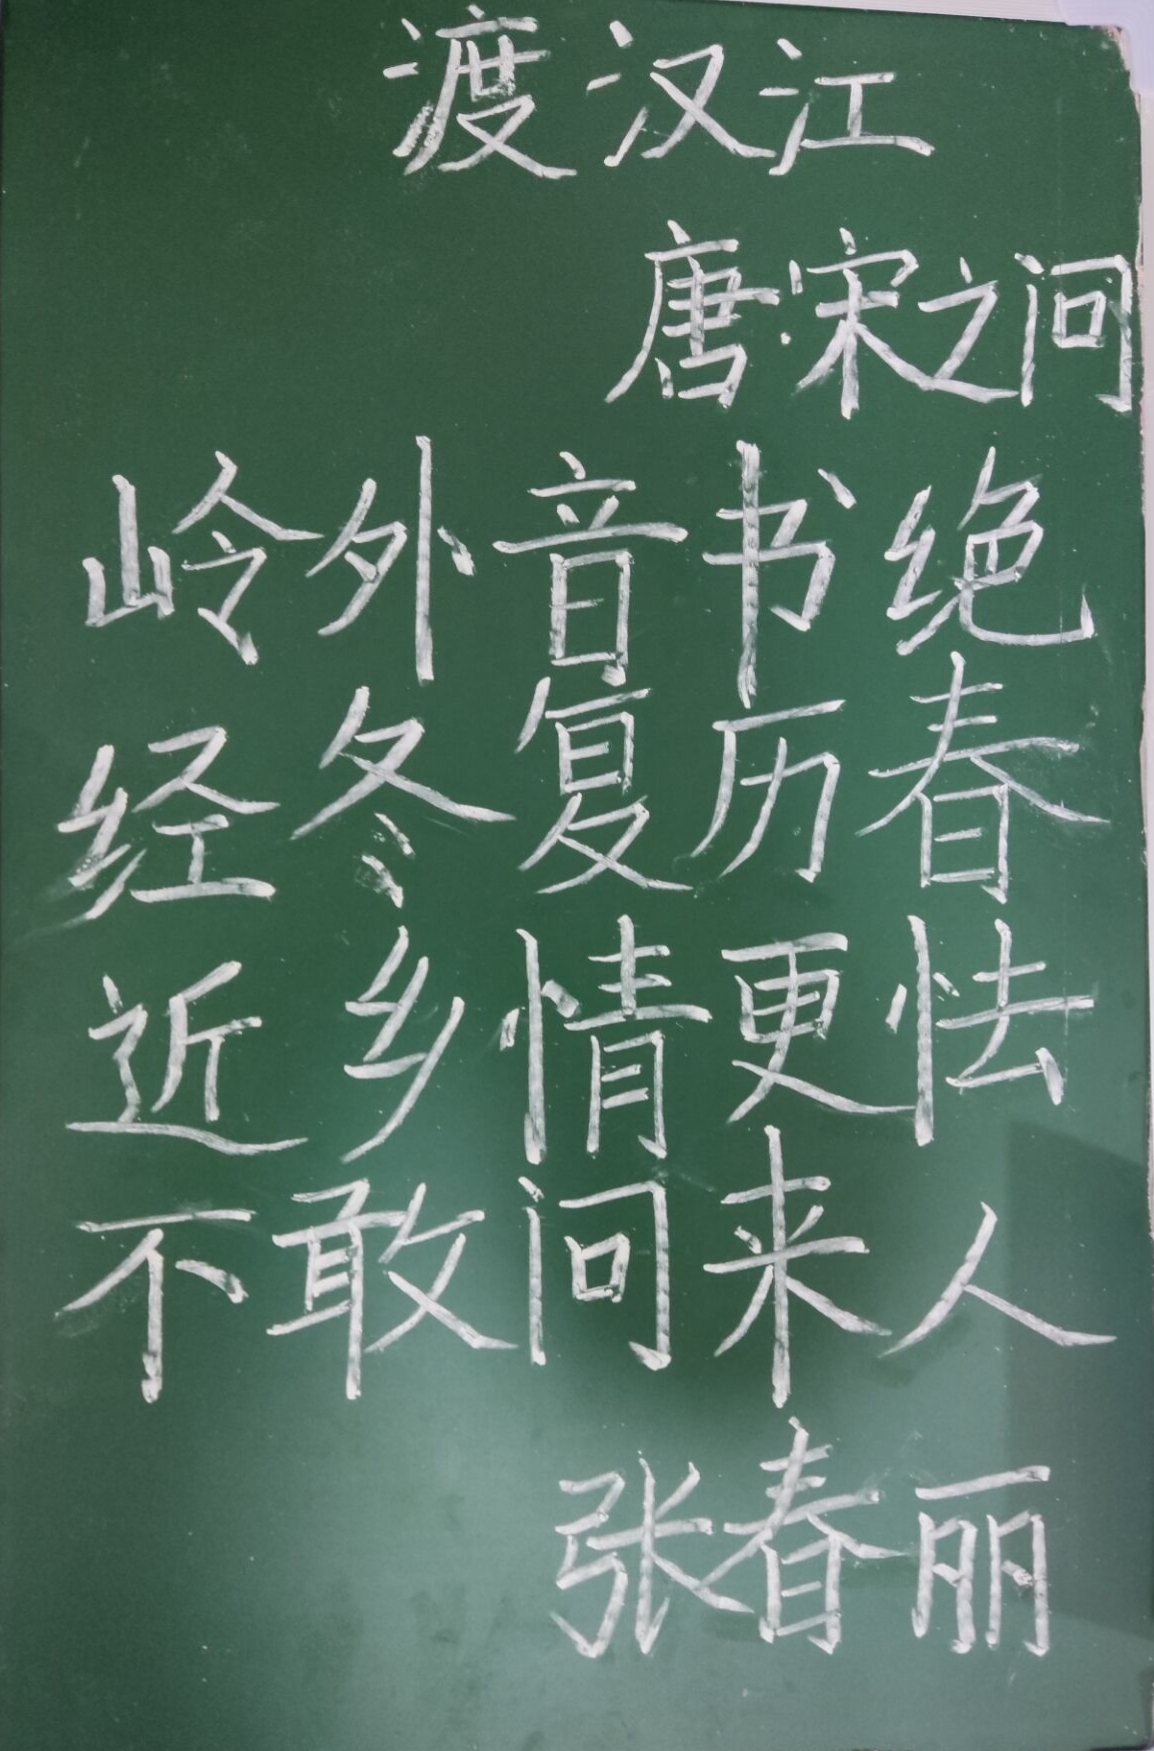 渡汉江
唐:宋之问
岭外音书绝
经冬复历春
近乡情更怯
不敢问来人
张春丽